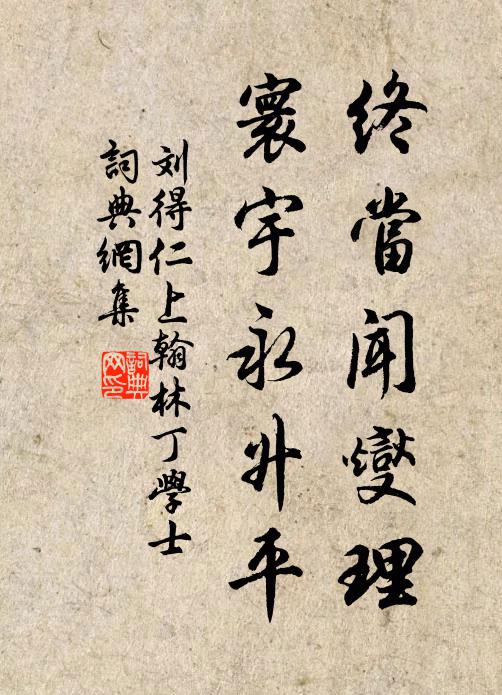 終當聞燮理
寰宇永升平
刘得仁上翰林丁學士
詞典網集
詞典網印